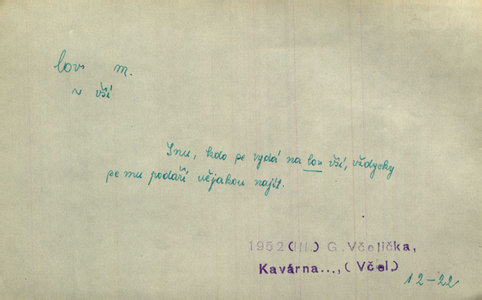 lov m.
~ vší
Inu, kdo se vydá na lov vší, vždycky
se mu podaří nějakou najít.
1952 (III.) G. Včelička,
Kavárna..., (Včel.)
12-22